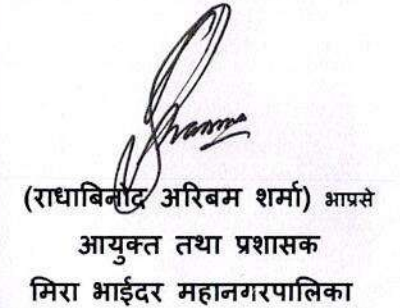 Sharma
(राधाबिनोद अरिबम शर्मा) भाप्रसे
आयुक्त तथा प्रशासक
मिरा भाईंदर महानगरपालिका